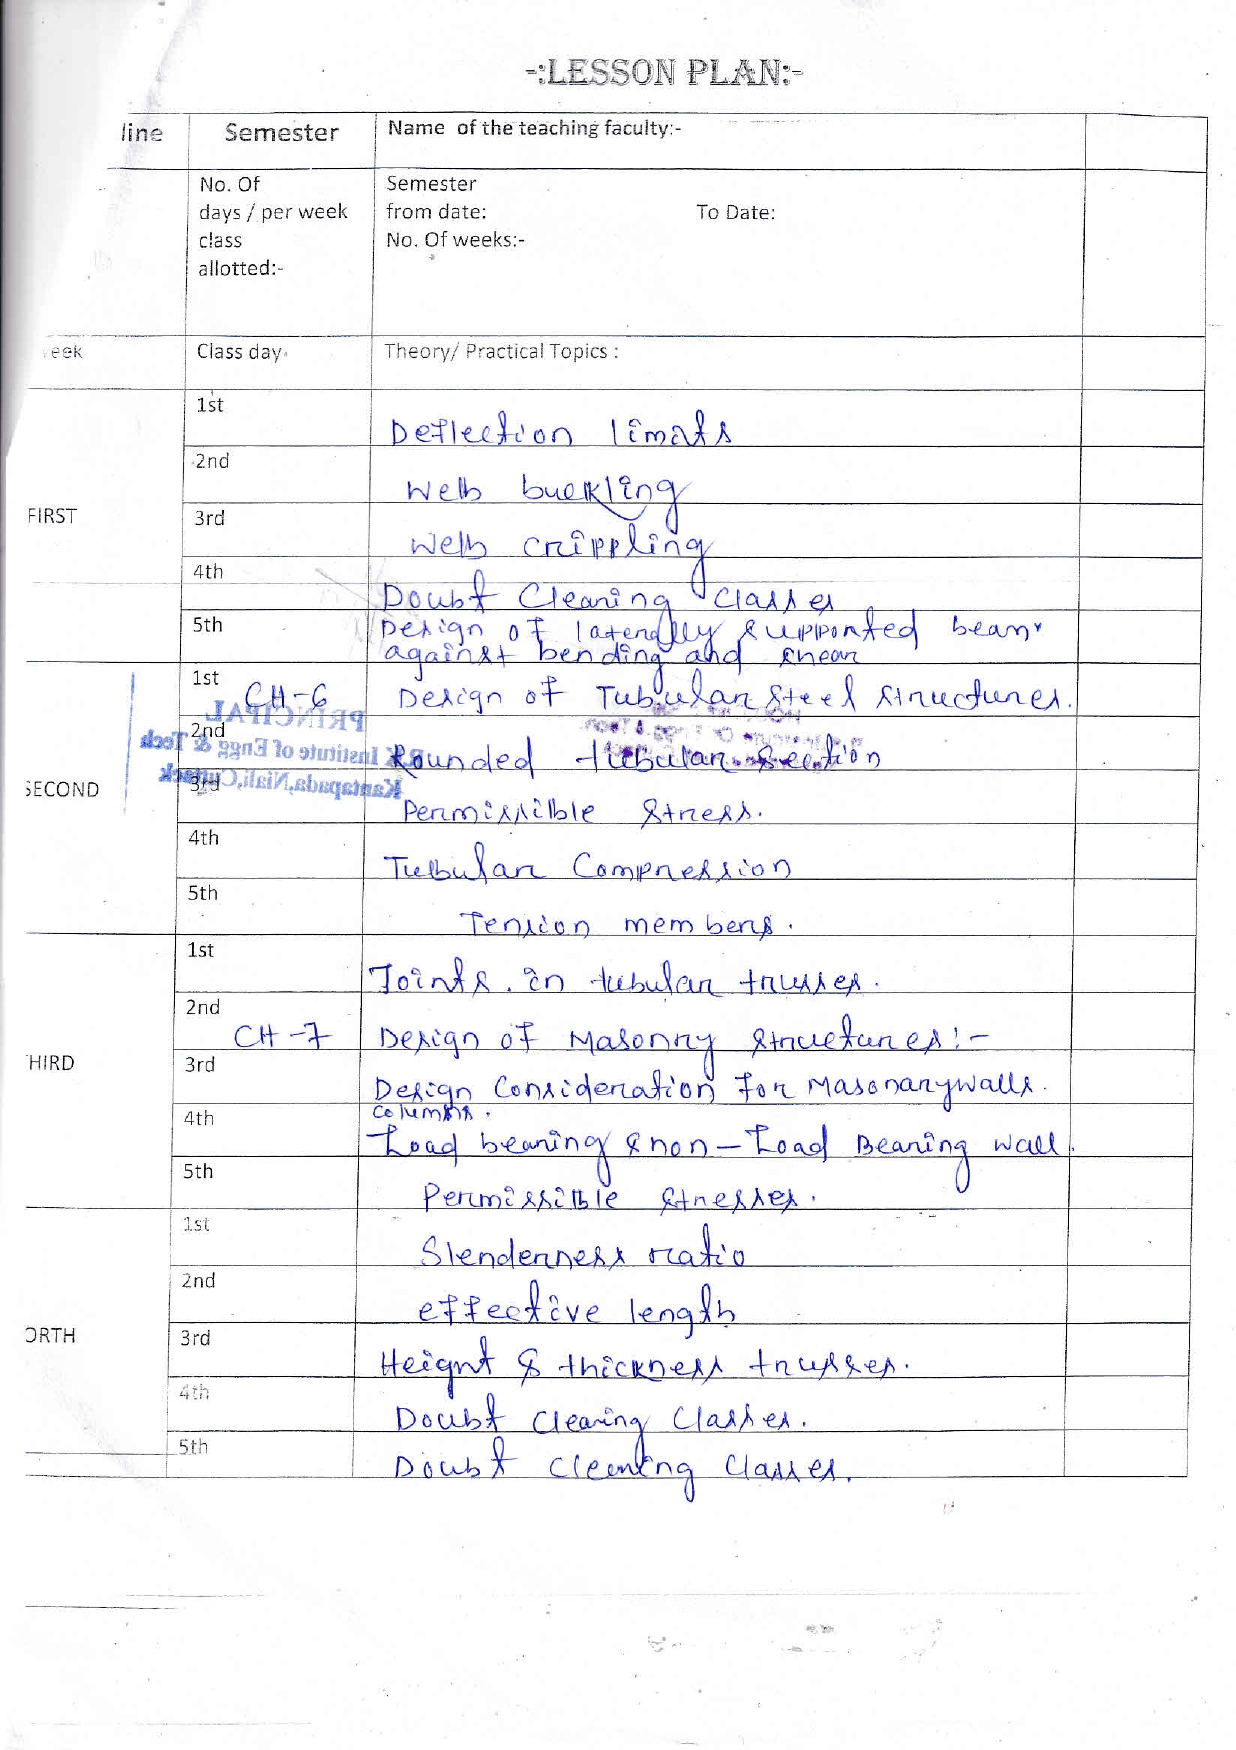 -:LESSON PLAN:-
line Semester Name of the teaching faculty:-
No. Of Semester
days / per week from date: To Date:
class No. Of weeks:-
allotted:-
eek Class day Theory/ Practical Topics :
1st
Deflection limits
2nd
Web buckling
FIRST 3rd
Web crippling
4th
Doubt Clearing Classes
5th Design of laterally supported beam
against bending and shear
1st CH-6 Design of Tubular Steel structures.
PRINCIPAL
2nd
Institute of Engg & Tech
Rounded tubular section
Kantapada,Niali,Cuttack
SECOND 3rd
Permissible stress.
4th
Tubular Compression
5th
Tension members.
1st
Joints. in tubular trusses.
2nd
CH-7 Design of Masonry structures:-
HIRD 3rd
Design Consideration for Masonarywalls.
columns.
4th
Load bearing & non-Load Bearing wall.
5th
Permissible stresses.
1st
Slenderness ratio
2nd
effective length
ORTH 3rd
Heignt & thickness trusses.
4th
Doubt Clearing Classes.
5th
Doubt Clearing Classes.